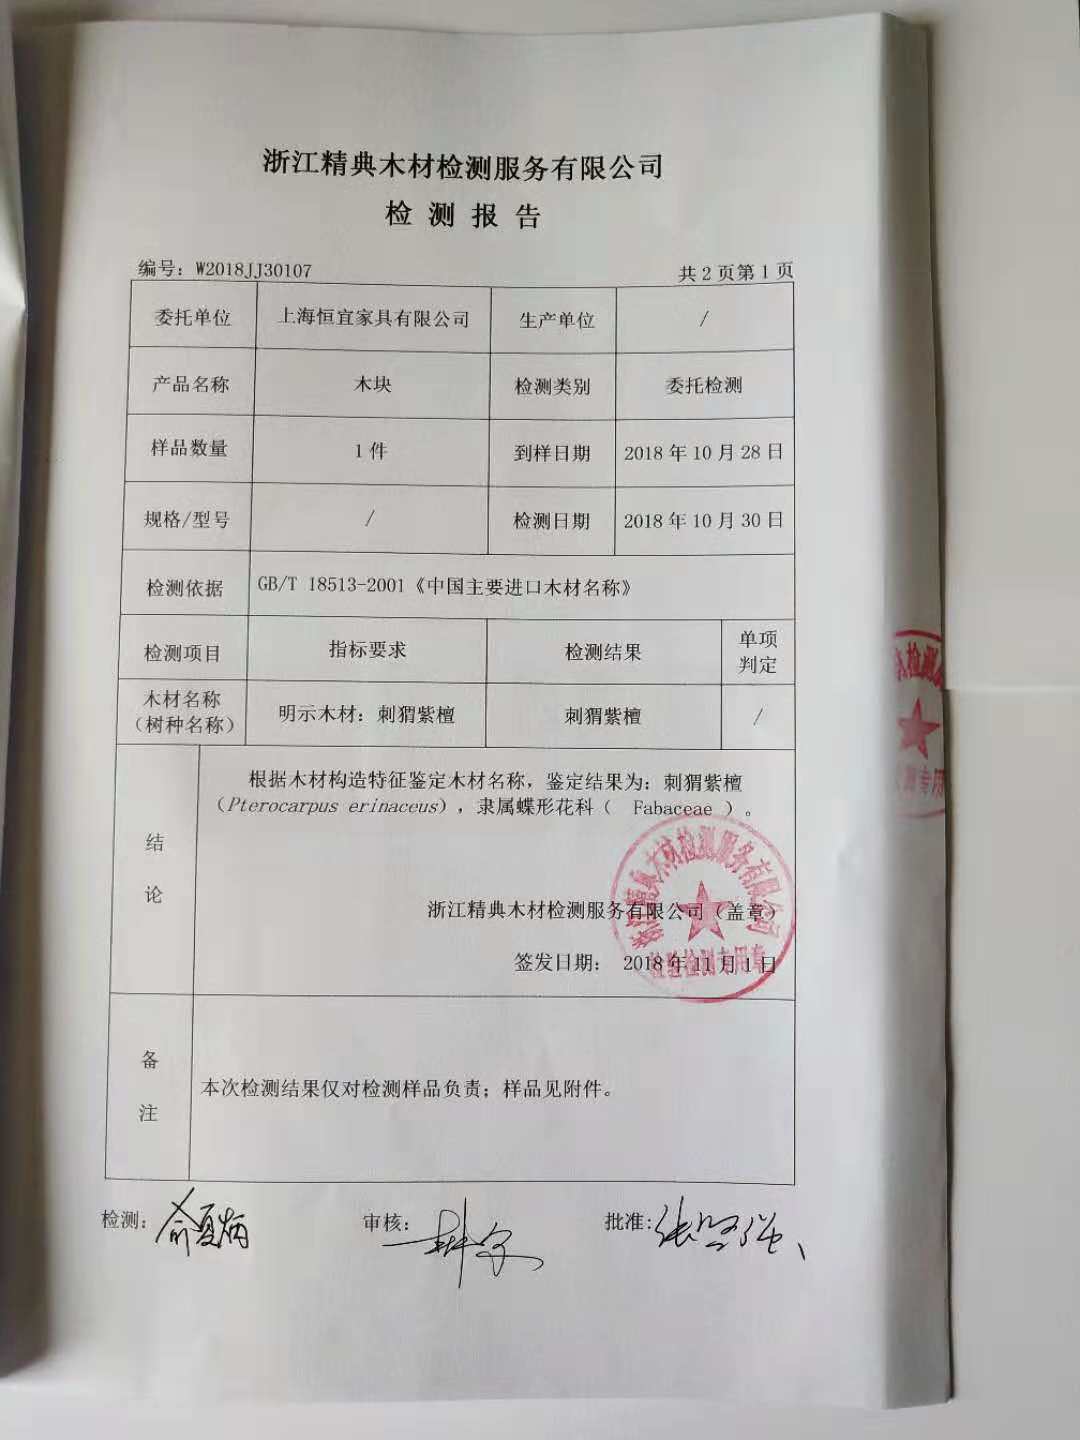 浙江精典木材检测服务有限公司
检测报告
编号：W2018JJ30107 共2页第1页
委托单位 上海恒宜家具有限公司 生产单位 /
产品名称 木块 检测类别 委托检测
样品数量 1件 到样日期 2018年10月28日
规格/型号 / 检测日期 2018年10月30日
检测依据 GB/T 18513-2001《中国主要进口木材名称》
检测项目 指标要求 检测结果 单项
判定
木材名称
（树种名称） 明示木材：刺猬紫檀 刺猬紫檀 /
结
论
根据木材构造特征鉴定木材名称，鉴定结果为：刺猬紫檀
（Pterocarpus erinaceus），隶属蝶形花科（ Fabaceae ）。
浙江精典木材检测服务有限公司（盖章）
签发日期： 2018年11月1日
浙江精典木材检测服务有限公司
检验检测专用章
备
注
本次检测结果仅对检测样品负责；样品见附件。
检测： 审核： 批准：张坚强
木检测
测专用